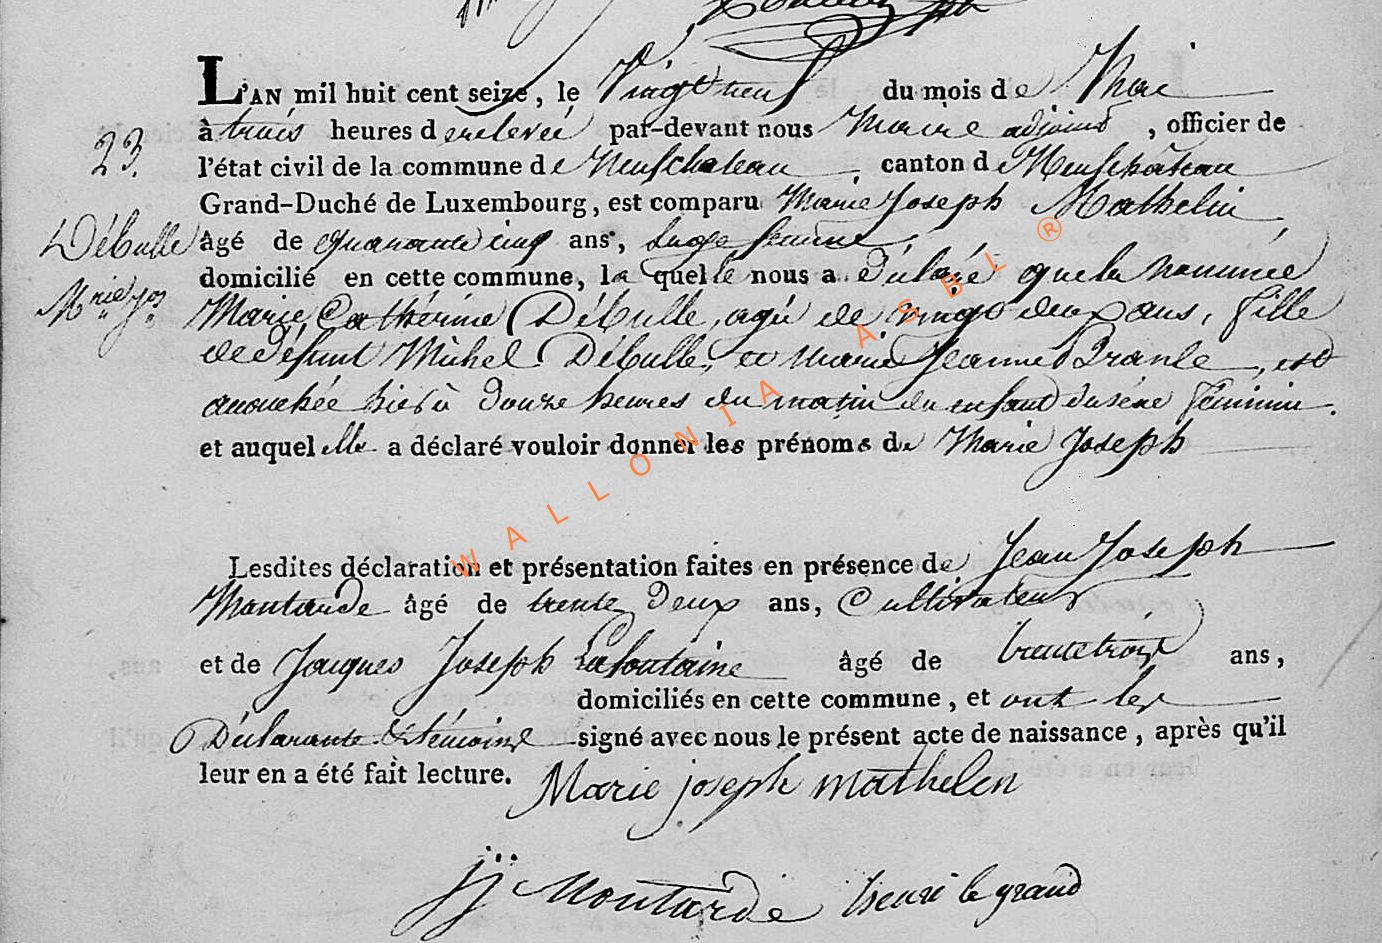 L'AN mil huit cent seize, le Vingt neuf du mois de Mai
23.
à trois heures d relevée par-devant nous Maire adjoint, officier de
l'état civil de la commune de Neufchateau, canton de Neufchâteau
Grand-Duché de Luxembourg, est comparu Marie Joseph Mathelin
Débulle
âgé de quarante cinq ans, sage femme,
domicilié en cette commune, la quelle nous a déclaré que la nommée
Mrie Jos
Marie Catherine Débulle, agé de vingt deux ans, fille
de défunt Michel Débulle, et Marie Jeanne, est
accouchée hier à douze heures du matin du enfant du sexe féminin.
et auquel elle a déclaré vouloir donner les prénoms de Marie Joseph
Lesdites déclaration et présentation faites en présence de Jean Joseph
Moutarde âgé de trente deux ans, Cultivateur
et de Jacques Joseph Lafontaine âgé de trente trois ans,
domiciliés en cette commune, et ont les
Déclarante & témoins signé avec nous le présent acte de naissance, après qu'il
leur en a été fait lecture.
Marie joseph mathelin
jj Moutarde henri le grand
WALLONIA ASBL ®